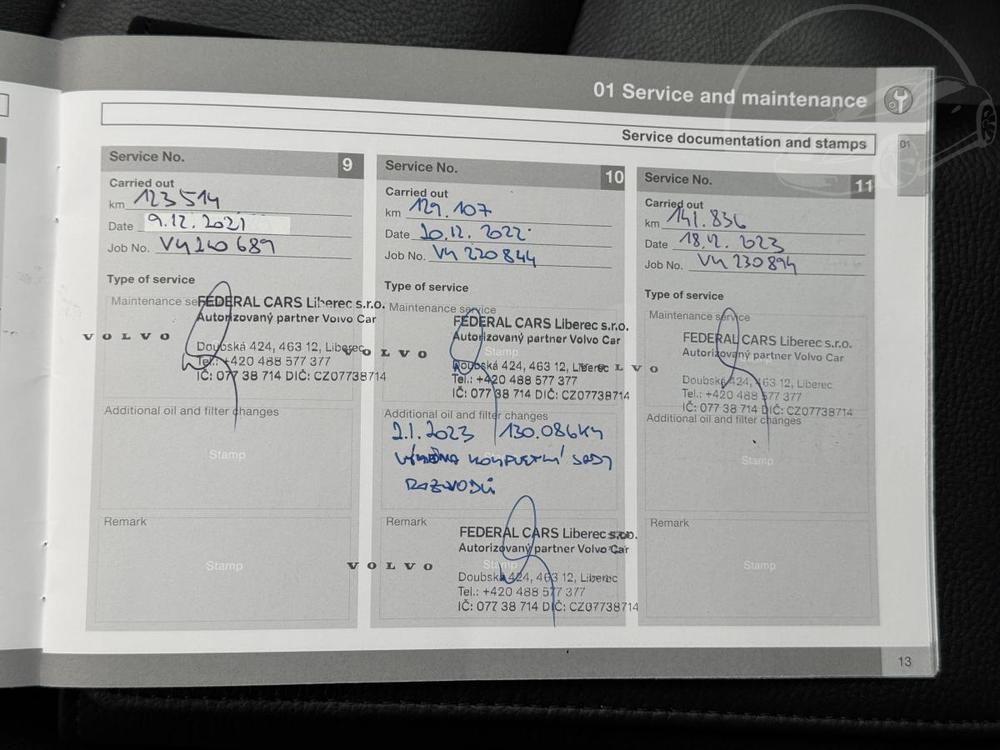 01 Service and maintenance
Service documentation and stamps
01
Service No. 9
Carried out
km 123 514
Date 9.12.2021
Job No.
Type of service
Maintenance se
FEDERAL CARS Liberec s.r.o.
Autorizovaný partner Volvo Car
VOLVO
Doubská 424, 463 12, Liberec
Tel.: +420 488 577 377
IČ: 077 38 714 DIČ: CZ07738714
Additional oil and filter changes
Stamp
Remark
Stamp
Service No. 10
Carried out
km 129.107
Date 20.12.2022
Job No. V4 220844
Type of service
Maintenance service
FEDERAL CARS Liberec s.r.o.
Autorizovaný partner Volvo Car
Stamp
VOLVO
Doubská 424, 463 12, Liberec
Tel.: +420 488 577 377
IČ: 077 38 714 DIČ: CZ07738714
Additional oil and filter changes
2.1.2023 130.086KM
VÝMĚNA KOMPLETNÍ SADY
ROZVODŮ
Remark
FEDERAL CARS Liberec s.r.o.
Autorizovaný partner Volvo Car
Stamp
VOLVO
Doubská 424, 463 12, Liberec
Tel.: +420 488 577 377
IČ: 077 38 714 DIČ: CZ07738714
Service No. 11
Carried out
km 141.836
Date 18.12.2023
Job No. V4 230894
Type of service
Maintenance service
FEDERAL CARS Liberec s.r.o.
Autorizovaný partner Volvo Car
VOLVO
Doubská 424, 463 12, Liberec
Tel.: +420 488 577 377
IČ: 077 38 714 DIČ: CZ07738714
Additional oil and filter changes
Stamp
Remark
Stamp
13